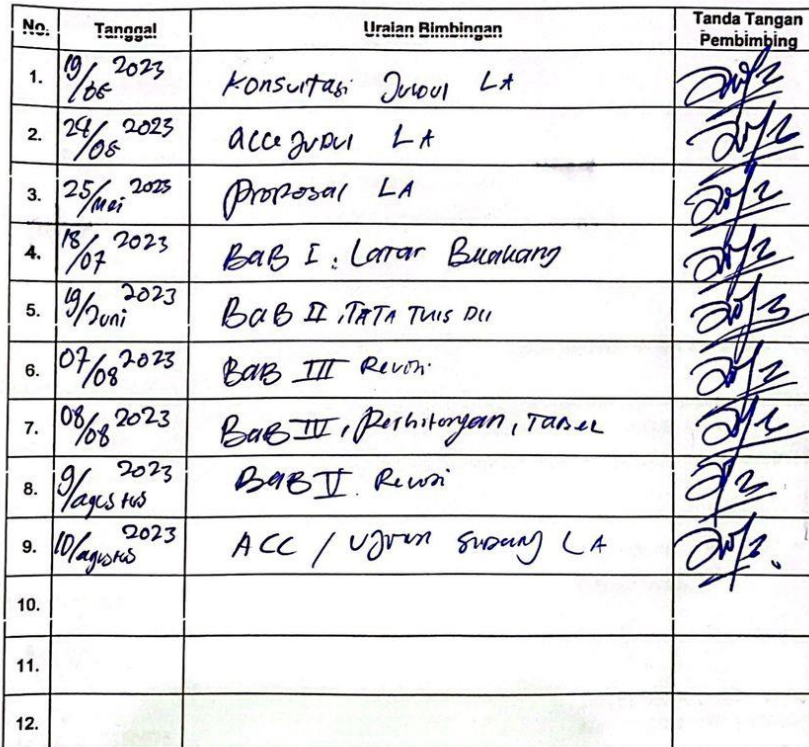 No. Tanggal Uraian Bimbingan Tanda Tangan Pembimbing
1. 19/05 2023 Konsultasi Judul LA
2. 24/05 2023 acce Judul LA
3. 25/Mei 2023 Proposal LA
4. 18/07 2023 BaB I. Latar Belakang
5. 19/Juni 2023 BaB II, TATA Tulis Dll
6. 07/08 2023 BaB III Revisi
7. 08/08 2023 BaB IV, Perhitungan, Tabel
8. 9/agustus 2023 BaB V. Revisi
9. 10/agustus 2023 ACC / Ujian Sidang LA
10.
11.
12.